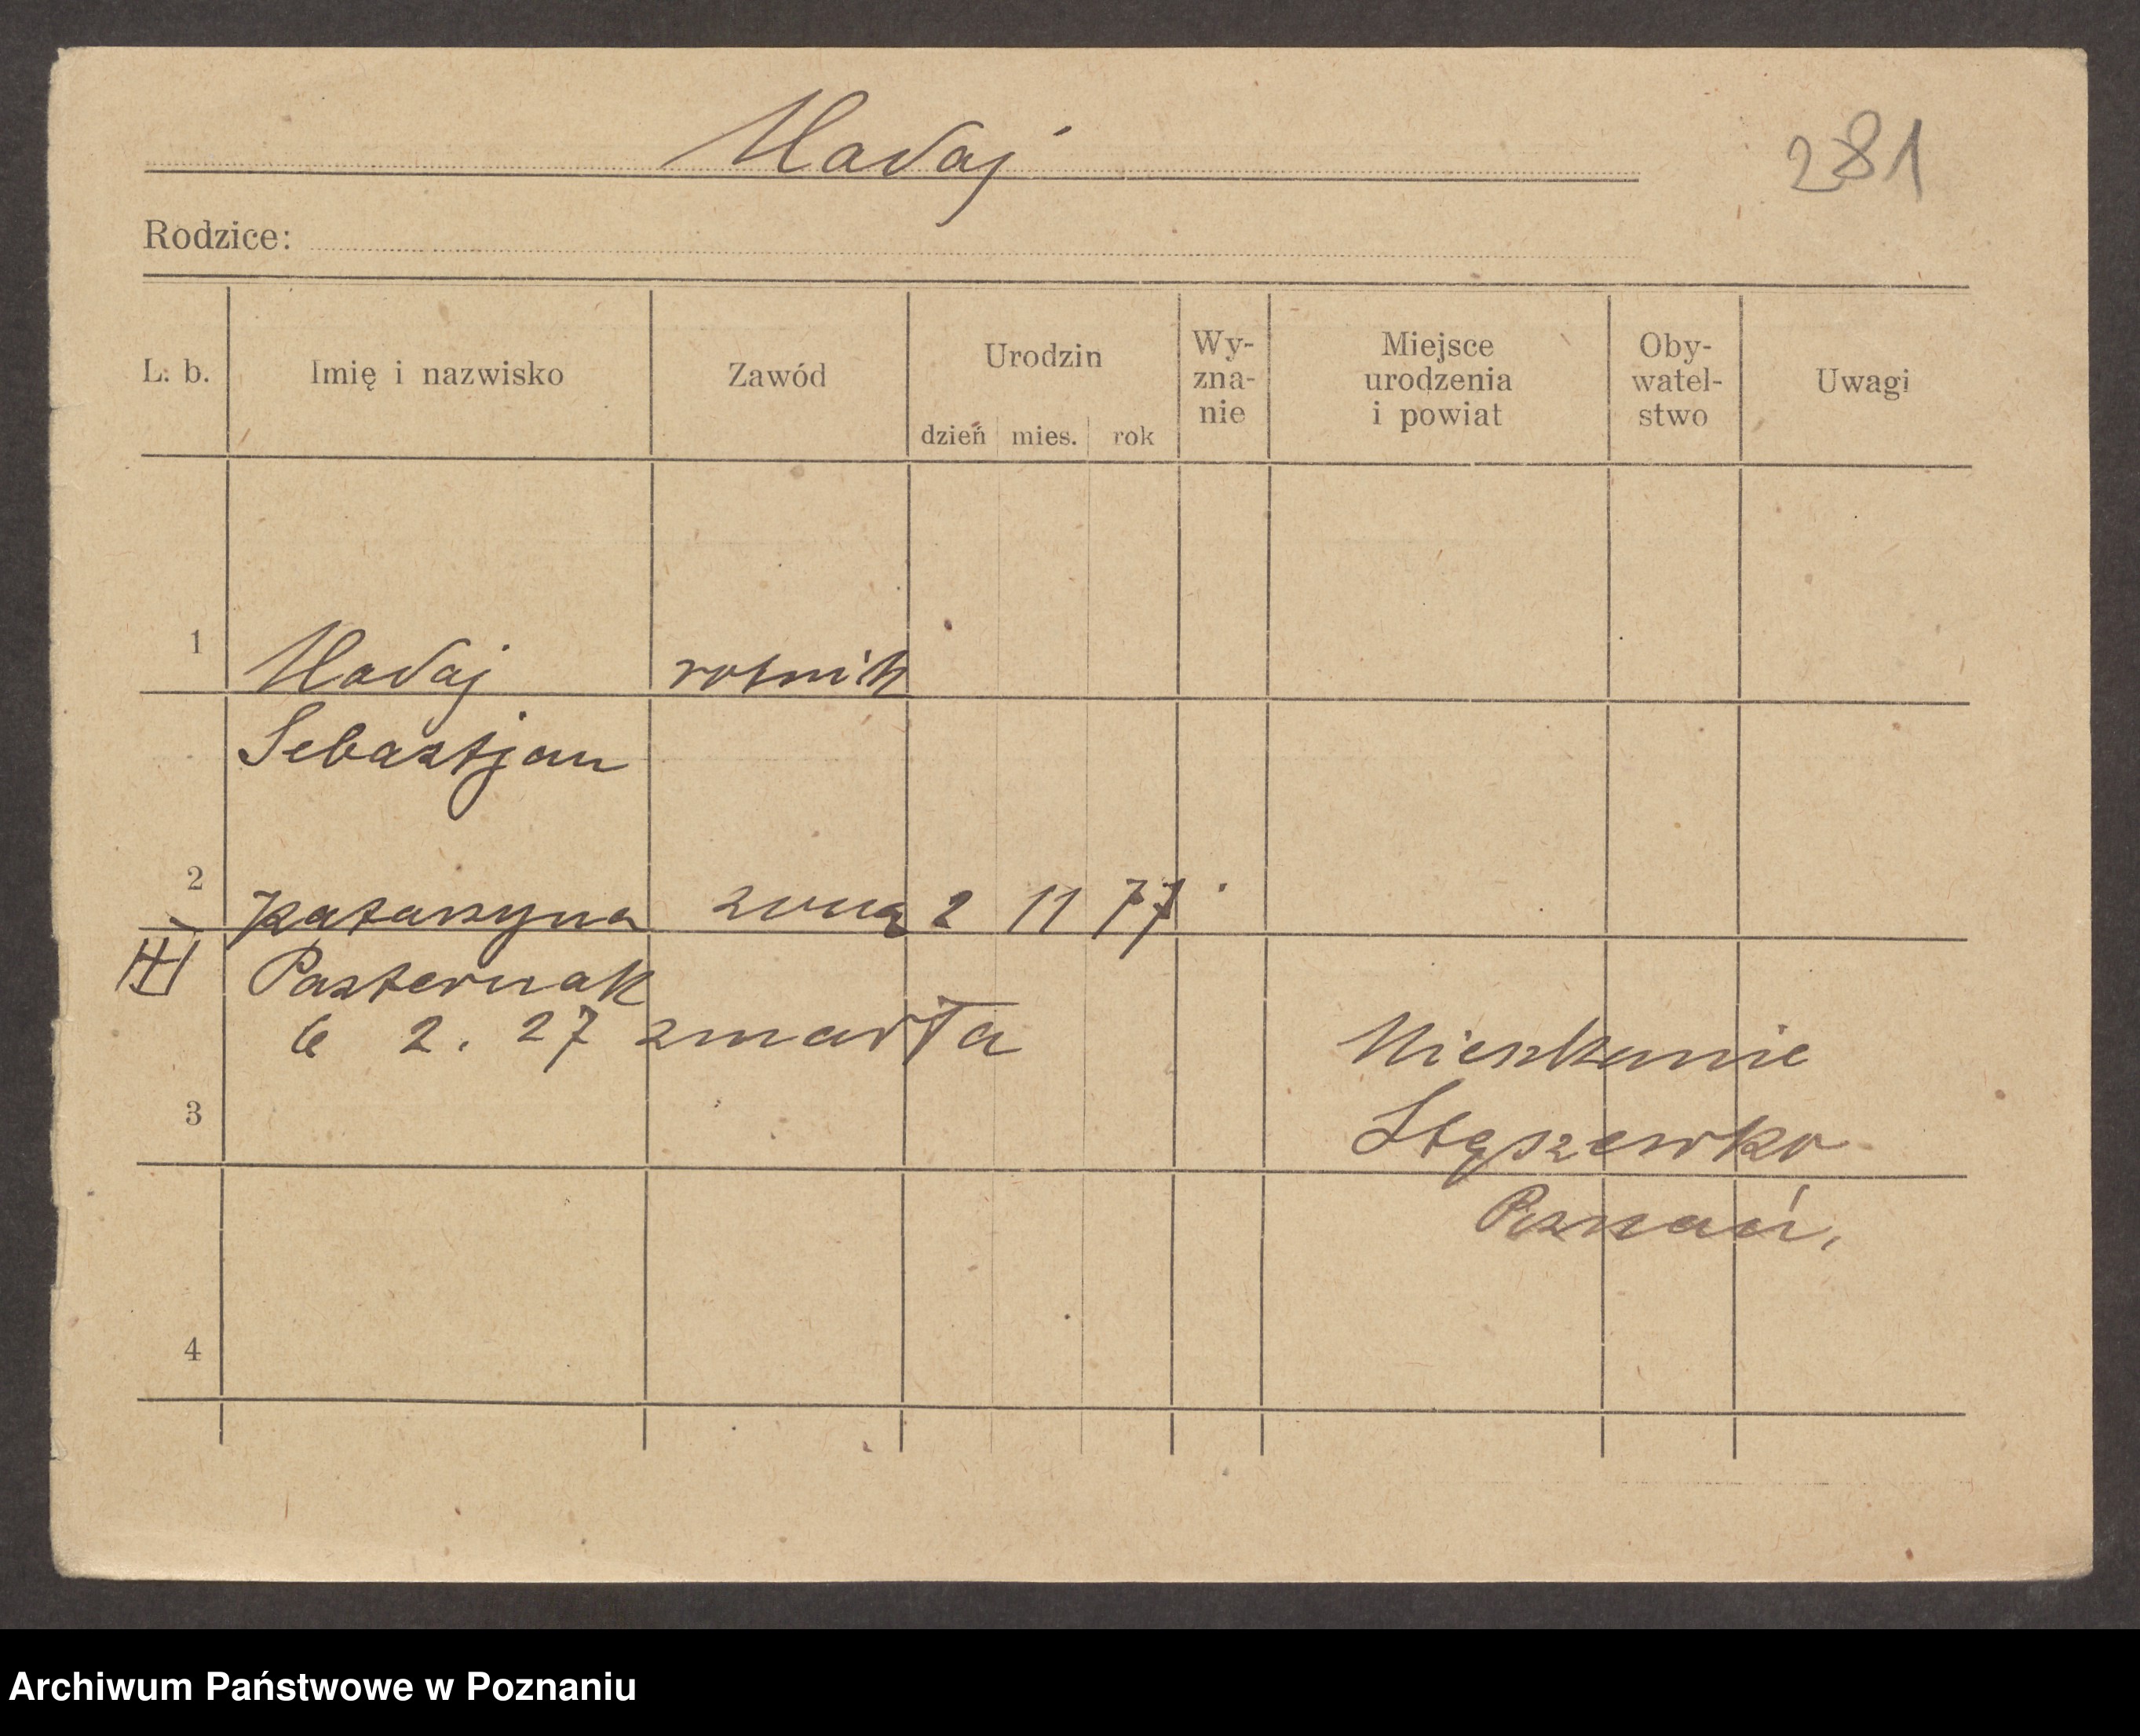 Madaj
281
Rodzice:
L. b. Imię i nazwisko Zawód Urodzin dzień mies. rok Wy-zna-nie Miejsce urodzenia i powiat Oby-watel-stwo Uwagi
1 Madaj rolnik
Sebastjan
2 Katarzyna żona 2 11 77
Pasternak
6 2. 27 zmarła
Mieszkanie
3
Stęszewko
Poznań,
4
Archiwum Państwowe w Poznaniu